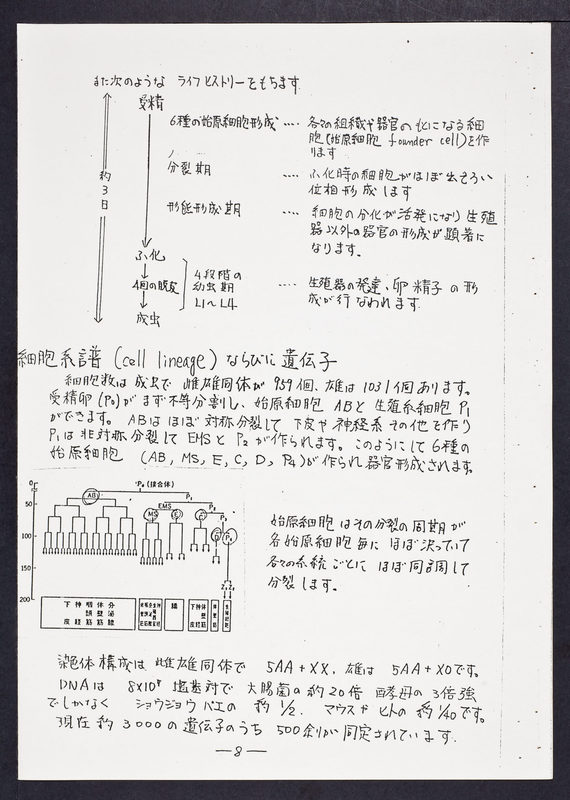 また次のような ライフヒストリーをもちます
受精
6種の始原細胞形成 ‥‥ 各々の組織や器官の もとになる細
胞(始原細胞 founder cell)を作
ります
分裂期 ‥‥ ふ化時の細胞がほぼ出そろい
位相形成します
約3日
形態形成期 ‥‥ 細胞の分化が活発になり生殖
器以外の器官の形成が顕著に
なります。
ふ化
4回の脱皮
4段階の
幼虫期
L1〜L4
‥‥ 生殖器の発達、卵精子の形
成が行なわれます
成虫
細胞系譜 (cell lineage) ならびに 遺伝子
細胞数は成虫で 雌雄同体が 959個、雄は 1031個あります。
受精卵(P₀)がまず不等分割し、始原細胞 ABと生殖系細胞 P₁
ができます。ABはほぼ対称分裂して 下皮や神経系その他を作り
P₁は非対称分裂して EMSと P₂ が作られます。このようにして 6種の
始原細胞 (AB, MS, E, C, D, P₄)が作られ器官形成されます。
P₀(接合体)
0
AB
P₁
EMS
50
MS
E
C
P₃
100
D
P₄
150
Z₂ Z₃
200
始原細胞はその分裂の周期が
各始原細胞毎に ほぼ決っていて
各々の系統ごとに ほぼ同調して
分裂します。
下神咽体分
頭壁泌
皮経筋筋腺
腸
下神体
壁
皮経筋
染色体構成は 雌雄同体で 5AA+XX, 雄は 5AA+XOです。
DNAは 8×10⁷ 塩基対で 大腸菌の約20倍 酵母の 3倍強
でしかなく ショウジョウバエの 約1/2. マウスやヒトの 約1/40です。
現在約 3000の遺伝子のうち 500余りが同定されています.
—8—